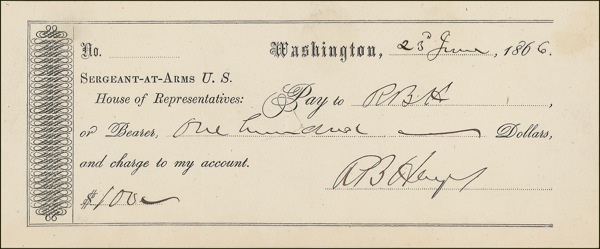 No. Washington, 23d June, 1866.
SERGEANT-AT-ARMS U. S.
House of Representatives: Pay to RBH,
or Bearer, One hundred Dollars,
and charge to my account.
$100 RBHayes